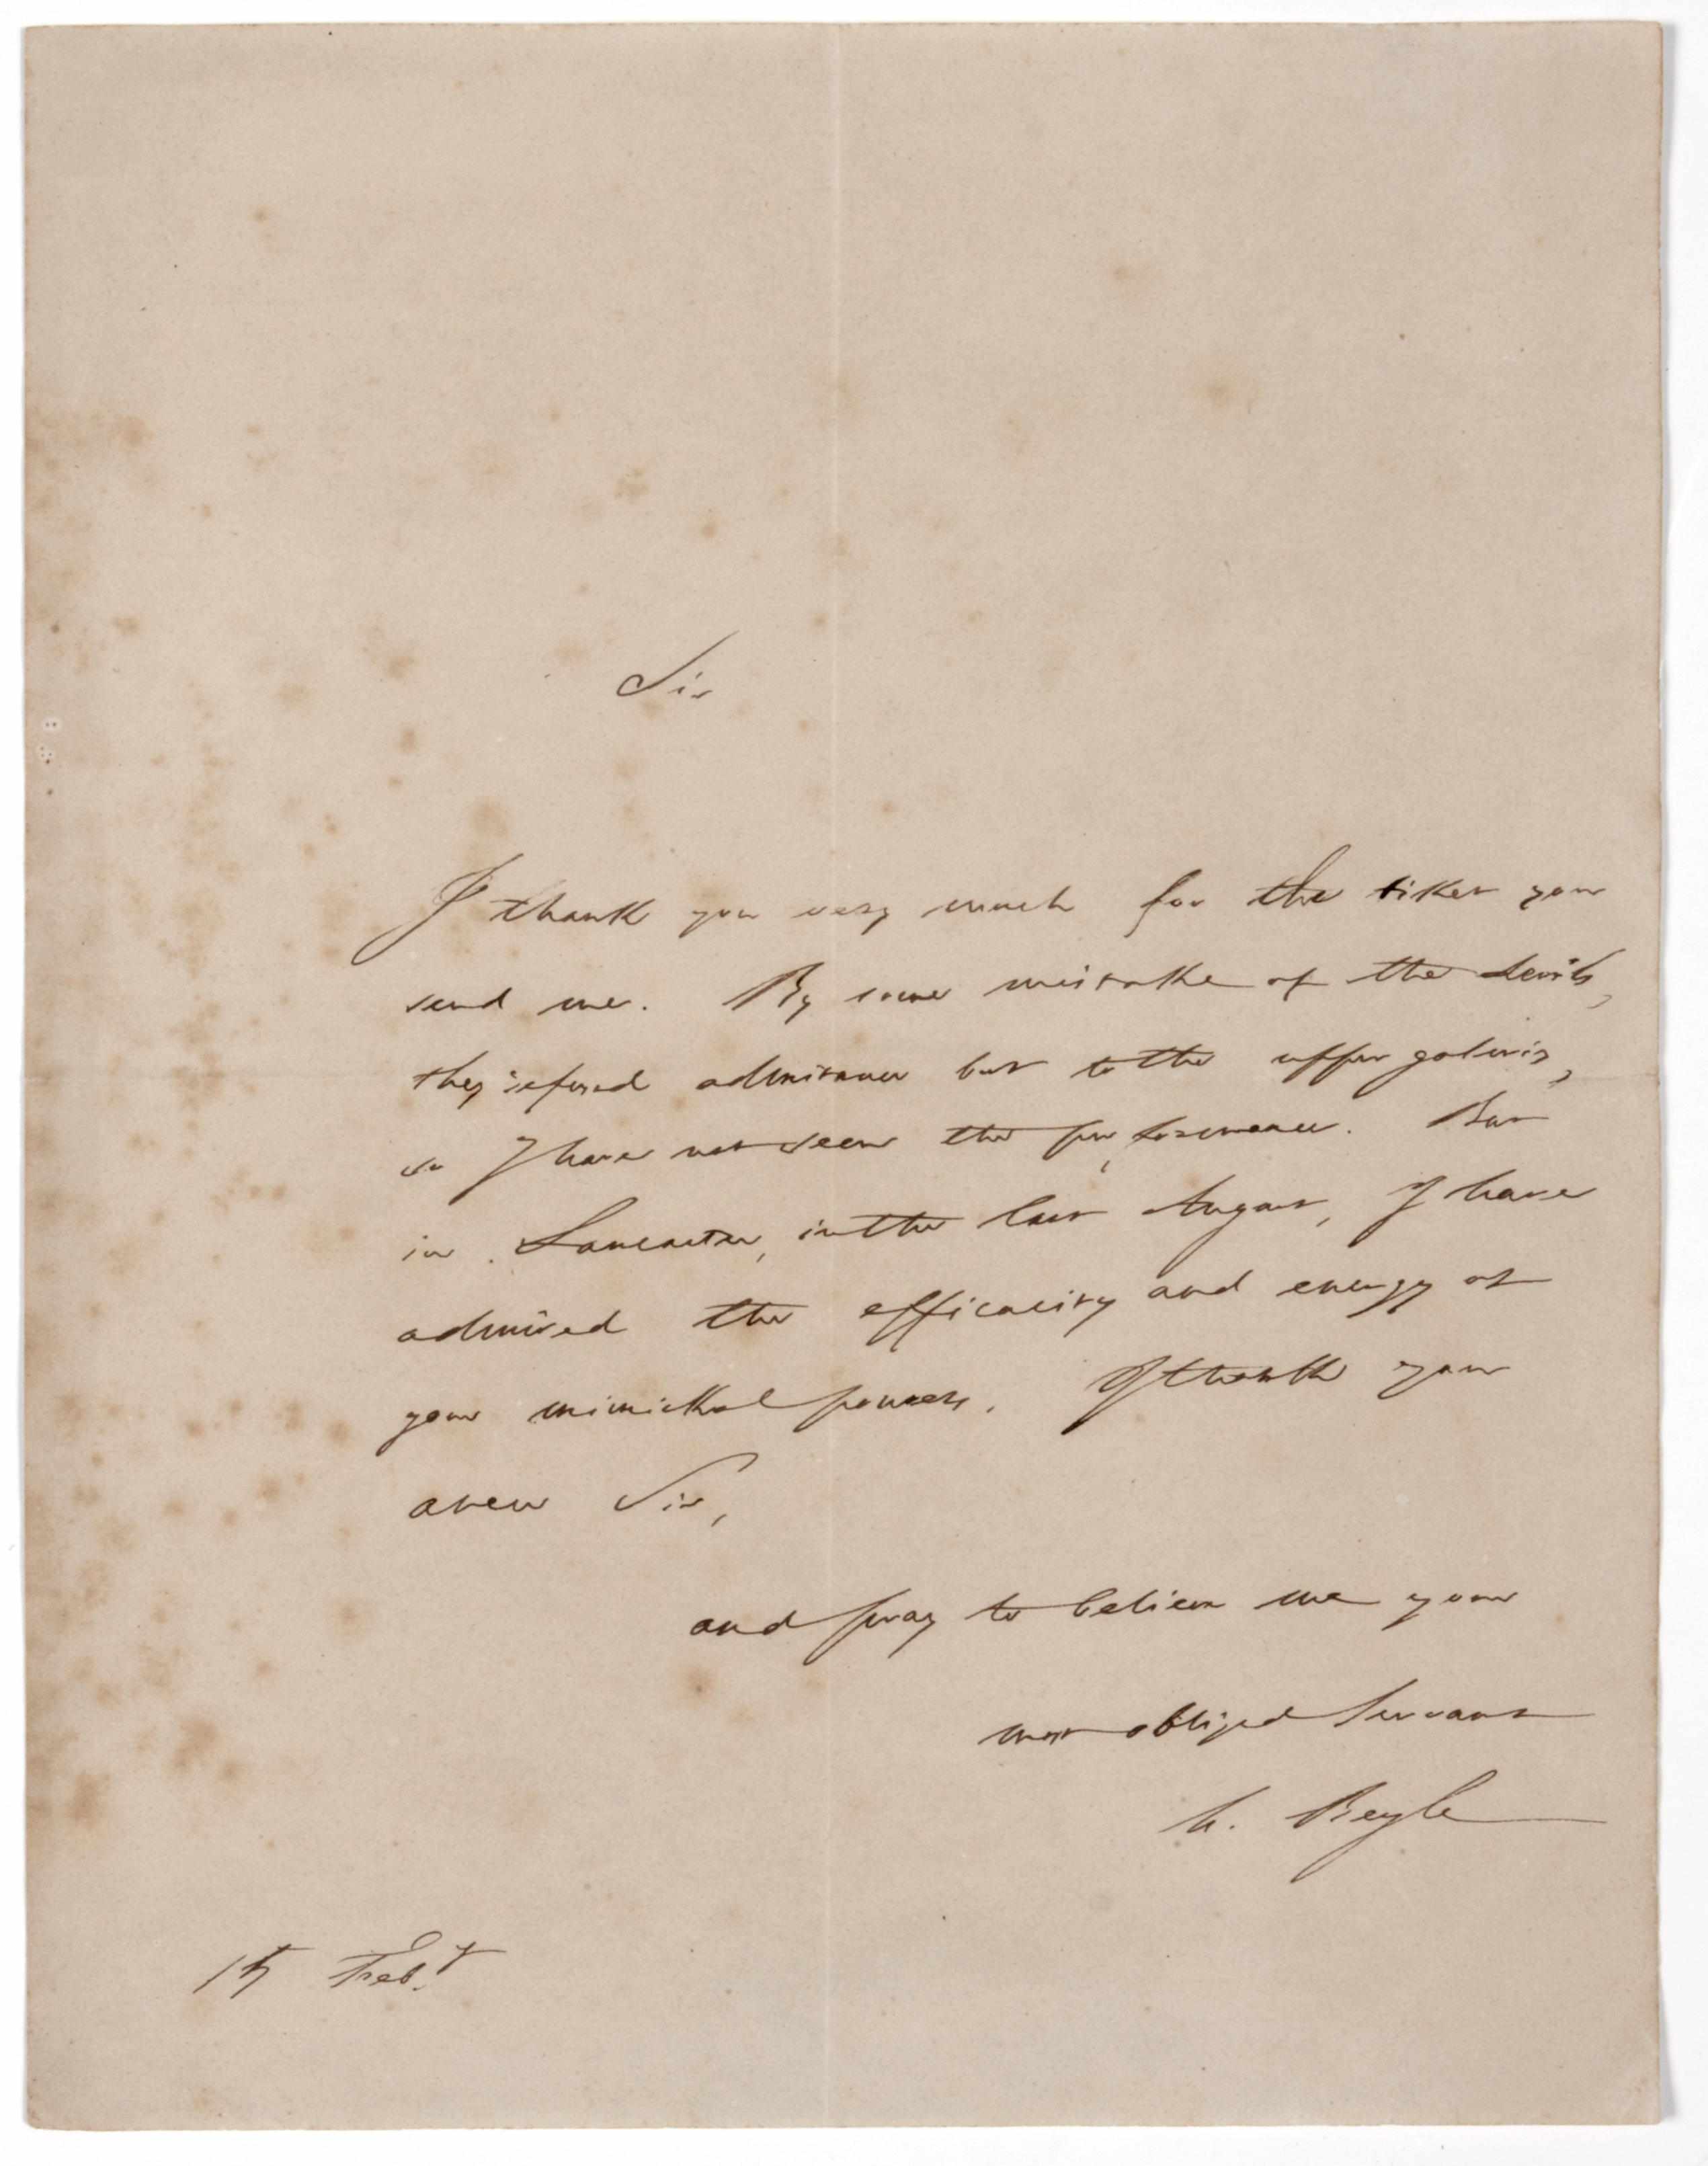 Sir
I thank you very much for the tiket you
send me. By some mistake of the devils,
they refused admitance but to the upper galeris,
so I have not seen the performance. But
in Lancaster, in the last August, I have
admired the efficacity and energy of
your mimickal powers. I thank you
anew Sir,
and pray to believe me your
most obliged Servant
h. Beyle
15 Feb.y